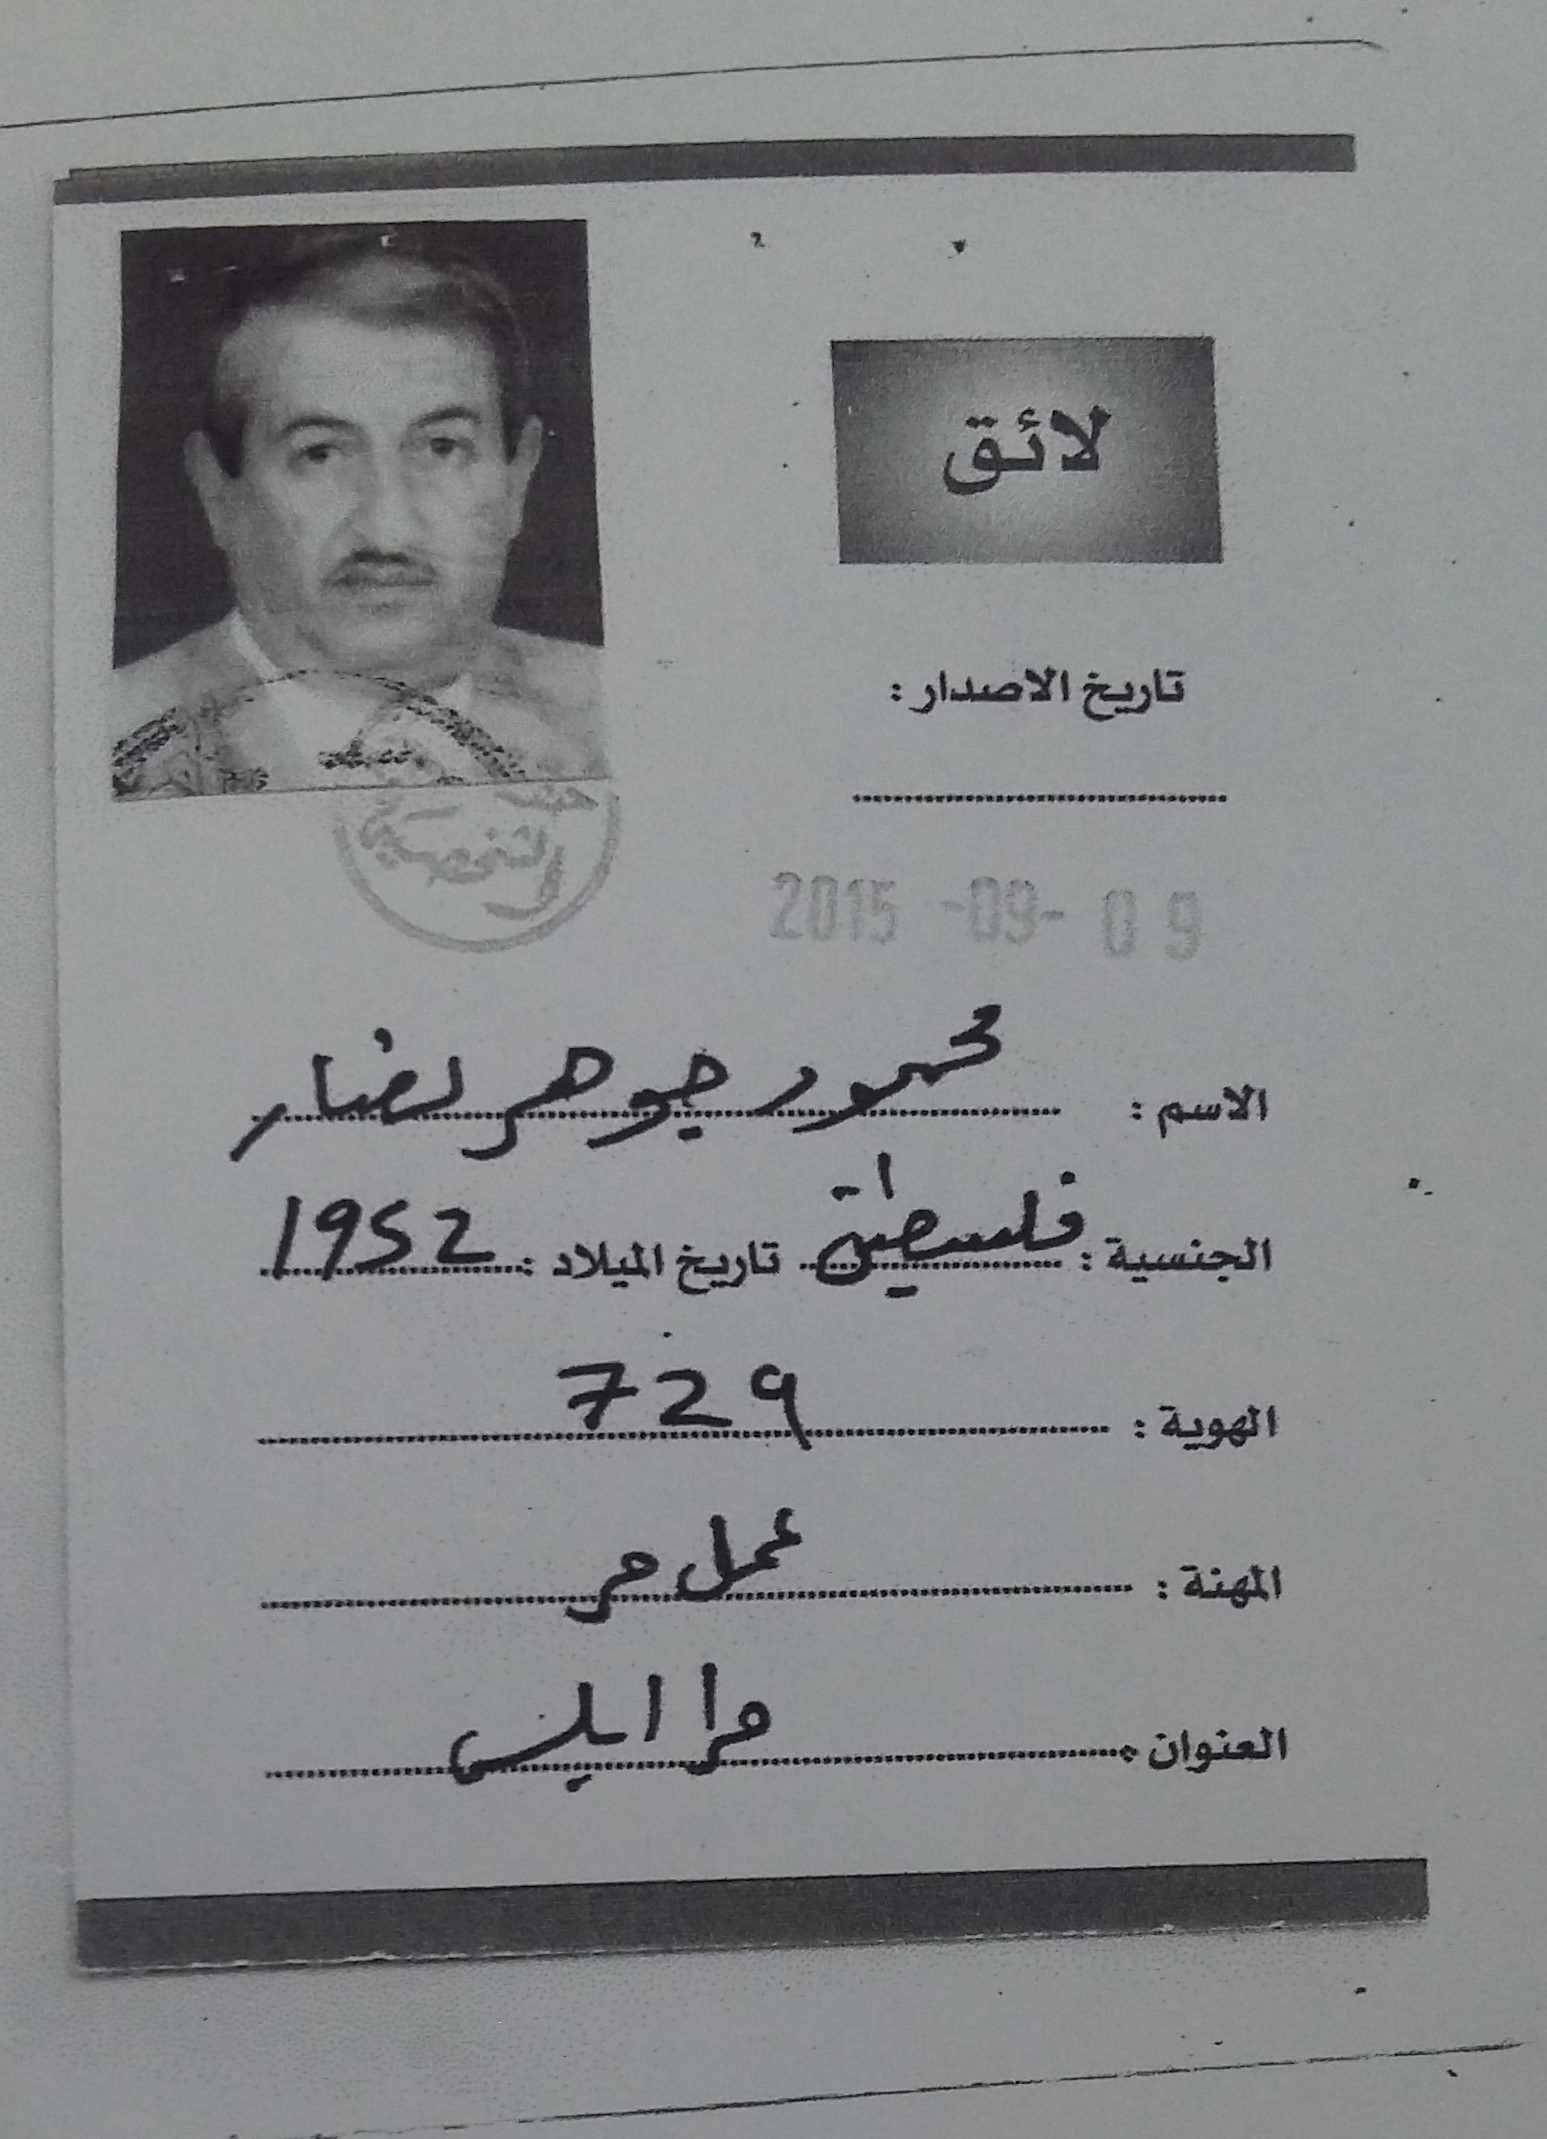 لائق
تاريخ الاصدار :
الشخصية
2015 -09- 09
الاسم : محمود جوهر نصار
الجنسية : فلسطيني تاريخ الميلاد : 1952
الهوية : 729
المهنة : عمل حر
العنوان :